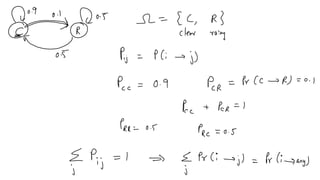 0.9 0.1 0.5
C R
0.5
Ω = { C, R }
clear rainy
P_ij = P(i → j)
P_CC = 0.9 P_CR = Pr(C → R) = 0.1
P_CC + P_CR = 1
P_RR = 0.5 P_RC = 0.5
∑_j P_ij = 1 ⇒ ∑_j Pr(i → j) = Pr(i → any)